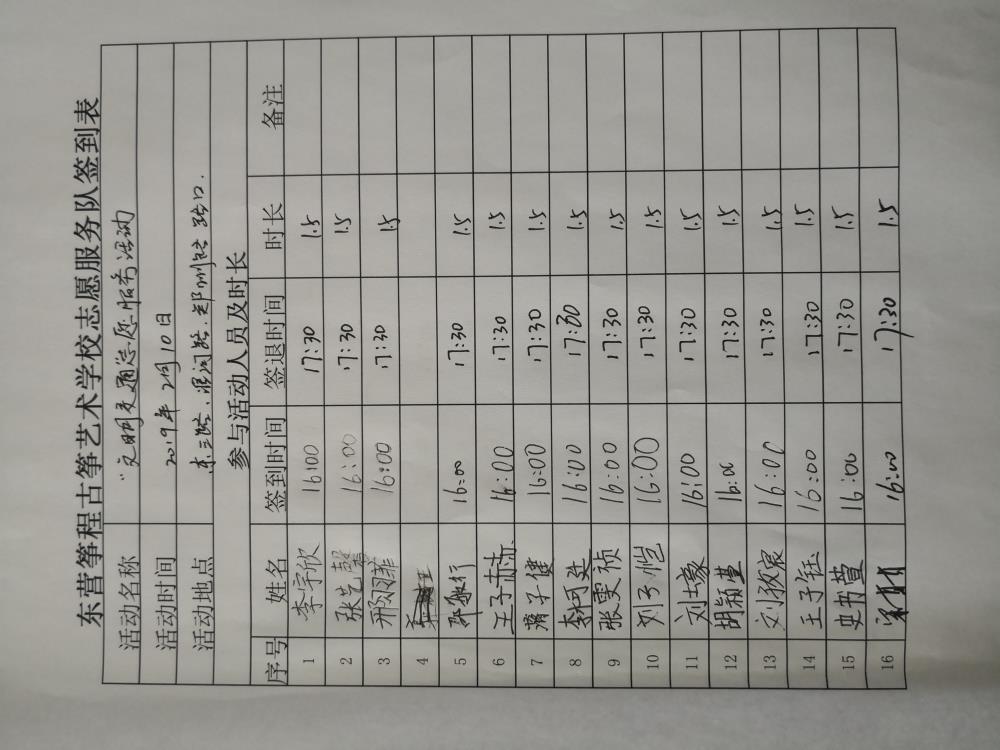 东营筝程古筝艺术学校志愿服务队签到表
活动名称 “文明交通志愿服务活动
活动时间 2019年2月10日
活动地点 东三路.淄河路.郑州路 路口.
参与活动人员及时长
序号 姓名 签到时间 签退时间 时长 备注
1 李宇欣 16:00 17:30 1.5
2 张艺馨 16:00 17:30 1.5
3 邢闵菲 16:00 17:30 1.5
4
5 16:00 17:30 1.5
6 王子赫 16:00 17:30 1.5
7 蒲子健 16:00 17:30 1.5
8 16:00 17:30 1.5
9 张雯祯 16:00 17:30 1.5
10 刘子恺 16:00 17:30 1.5
11 刘士豪 16:00 17:30 1.5
12 胡颖萱 16:00 17:30 1.5
13 刘孜宸 16:00 17:30 1.5
14 王子钰 16:00 17:30 1.5
15 史书萱 16:00 17:30 1.5
16 16:00 17:30 1.5